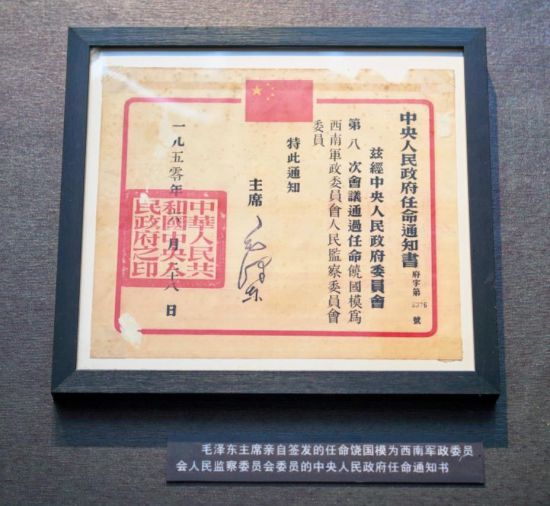 中央人民政府任命通知書
府字第 號
茲經中央人民政府委員會
第八次會議通過任命饒國模爲
西南軍政委員會人民監察委員會
委員
特此通知
主席 毛澤東
一九五零年 月 十八日
中華人民共
和國中央人
民政府之印
毛泽东主席亲自签发的任命饶国模为西南军政委员
会人民监察委员会委员的中央人民政府任命通知书